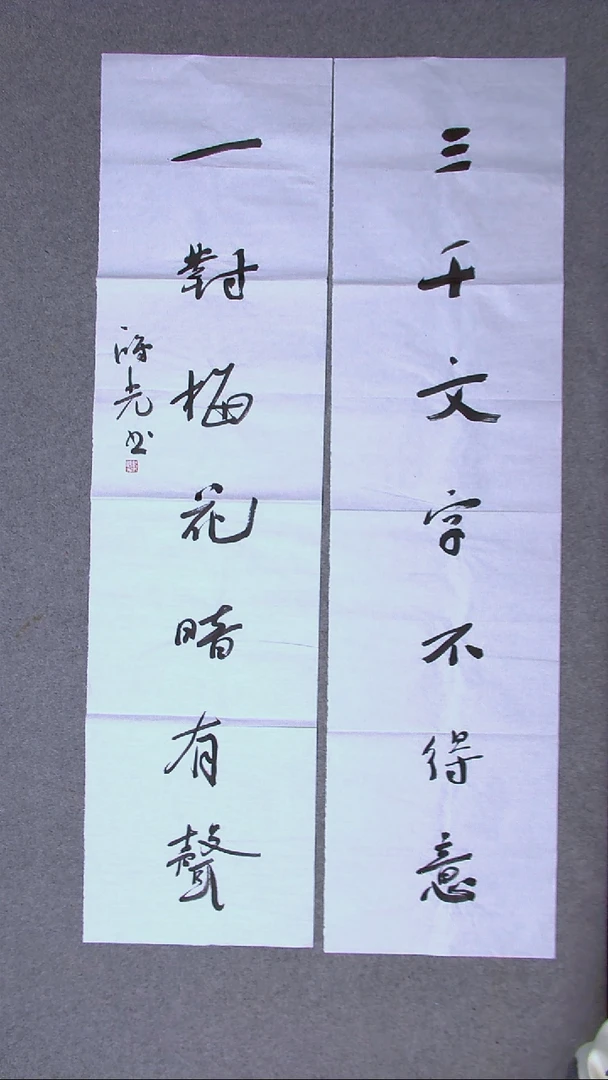 三千文字不得意
一對梅花暗有聲
光书